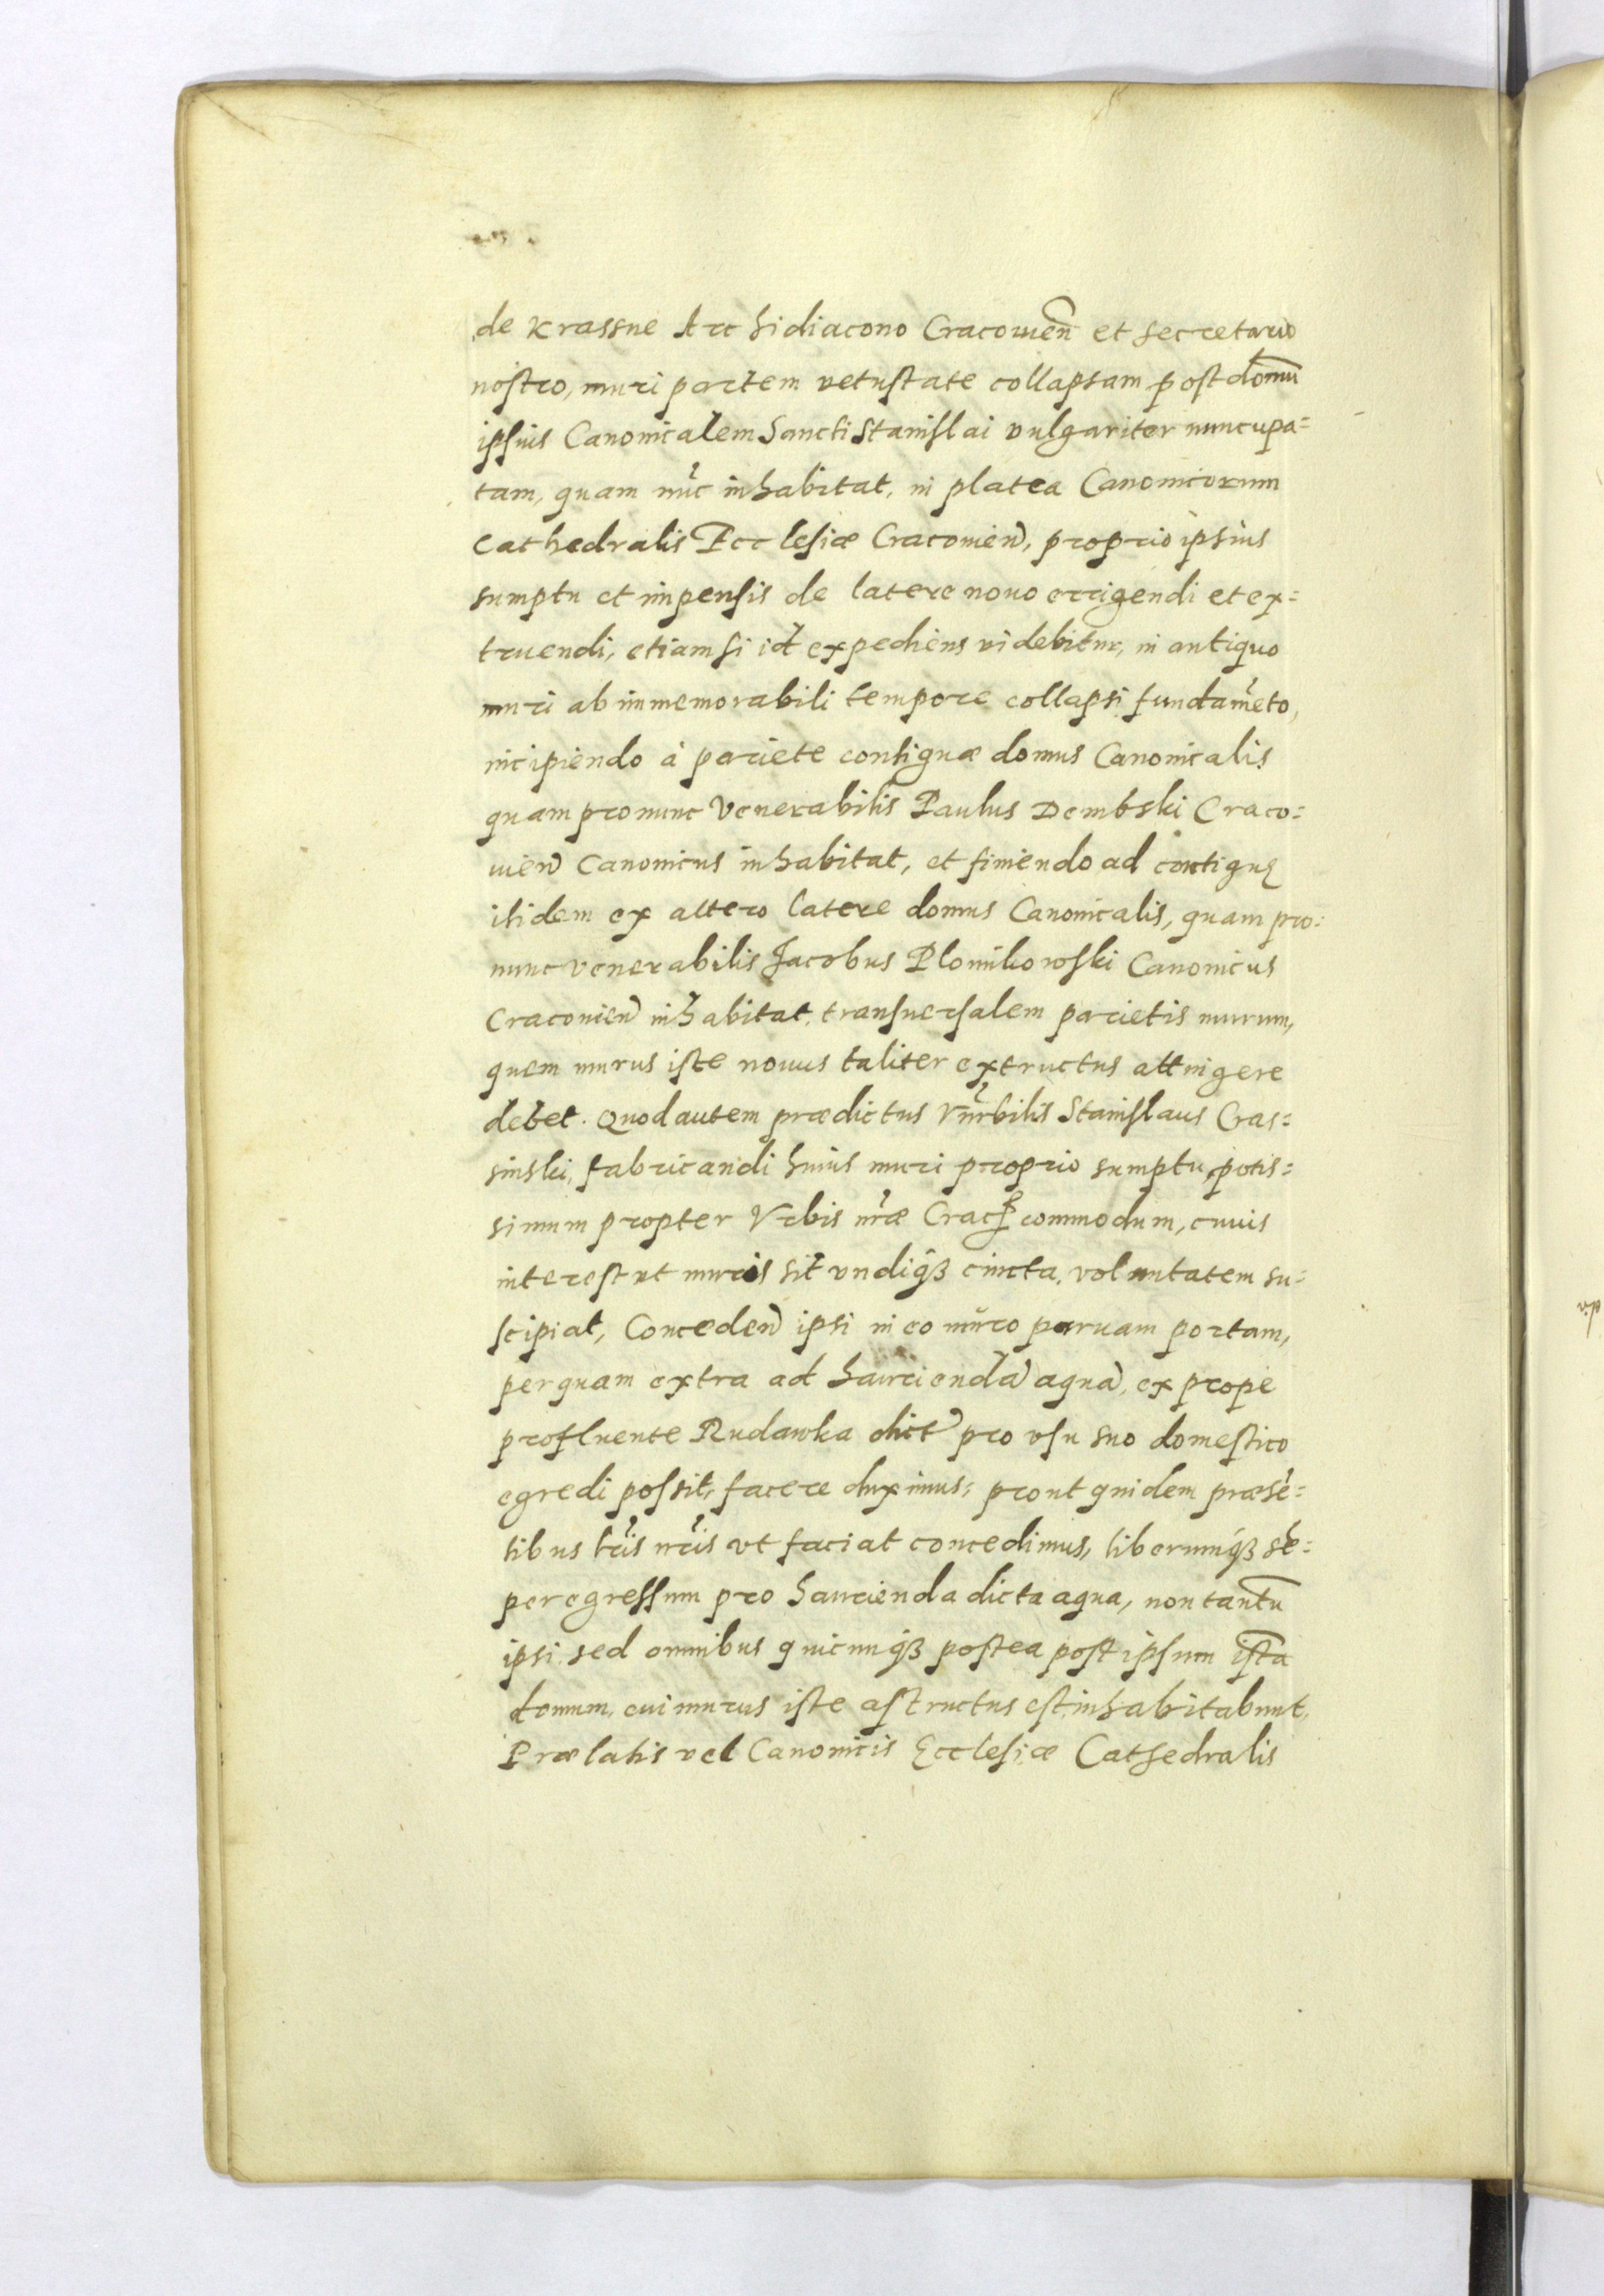 de Krassne Archidiacono Cracouien̄ et secretario
nostro, muri partem vetustate collapsam post domū
ipsius Canonicalem Sancti Stanislai vulgariter nuncupa=
tam, quam nūc inhabitat, in platea Canonicorum
Cathedralis Ecclesiæ Cracouien̄, proprio ipsius
sumptu et impensis de latere nouo errigendi et ex=
truendi, etiam si id expediens videbitur, in antiquo
muri ab immemorabili tempore collapsi fundamēto,
incipiendo à pariete contiguæ domus Canonicalis
quam pro nunc Venerabilis Paulus Dembski Craco=
uien̄ Canonicus inhabitat, et finiendo ad contiguę
itidem ex altero latere domus Canonicalis, quam pro=
nunc venerabilis Jacobus Plomikowski Canonicus
Cracouien̄ inhabitat, transuersalem parietis murum,
quem murus iste nouus taliter extructus attingere
debet. Quod autem prædictus Vn̄rbilis Stanislaus Cras=
sinski, fabricandi huius muri proprio sumptu, potis=
simum propter Vrbis nr̄æ Crac. commodum, cuius
interest vt muris sit vndiqȝ cincta, voluntatem su=
scipiat, Conceden̄ ipsi in eo muro paruam portam,
per quam extra ad hauriendā aquā, ex prope
profluente Rudawka dict̄ pro vsu suo domestico
egredi possit, facere duximus; prout quidem præsē=
tibus lr̄is nr̄is vt faciat concedimus, liberumqȝ sē=
per egressum pro haurienda dicta aqua, non tantū
ipsi, sed omnibus quicunqȝ postea post ipsum istā
domum, cui murus iste astructus est, inhabitabunt,
Prælatis vel Canonicis Ecclesiæ Cathedralis